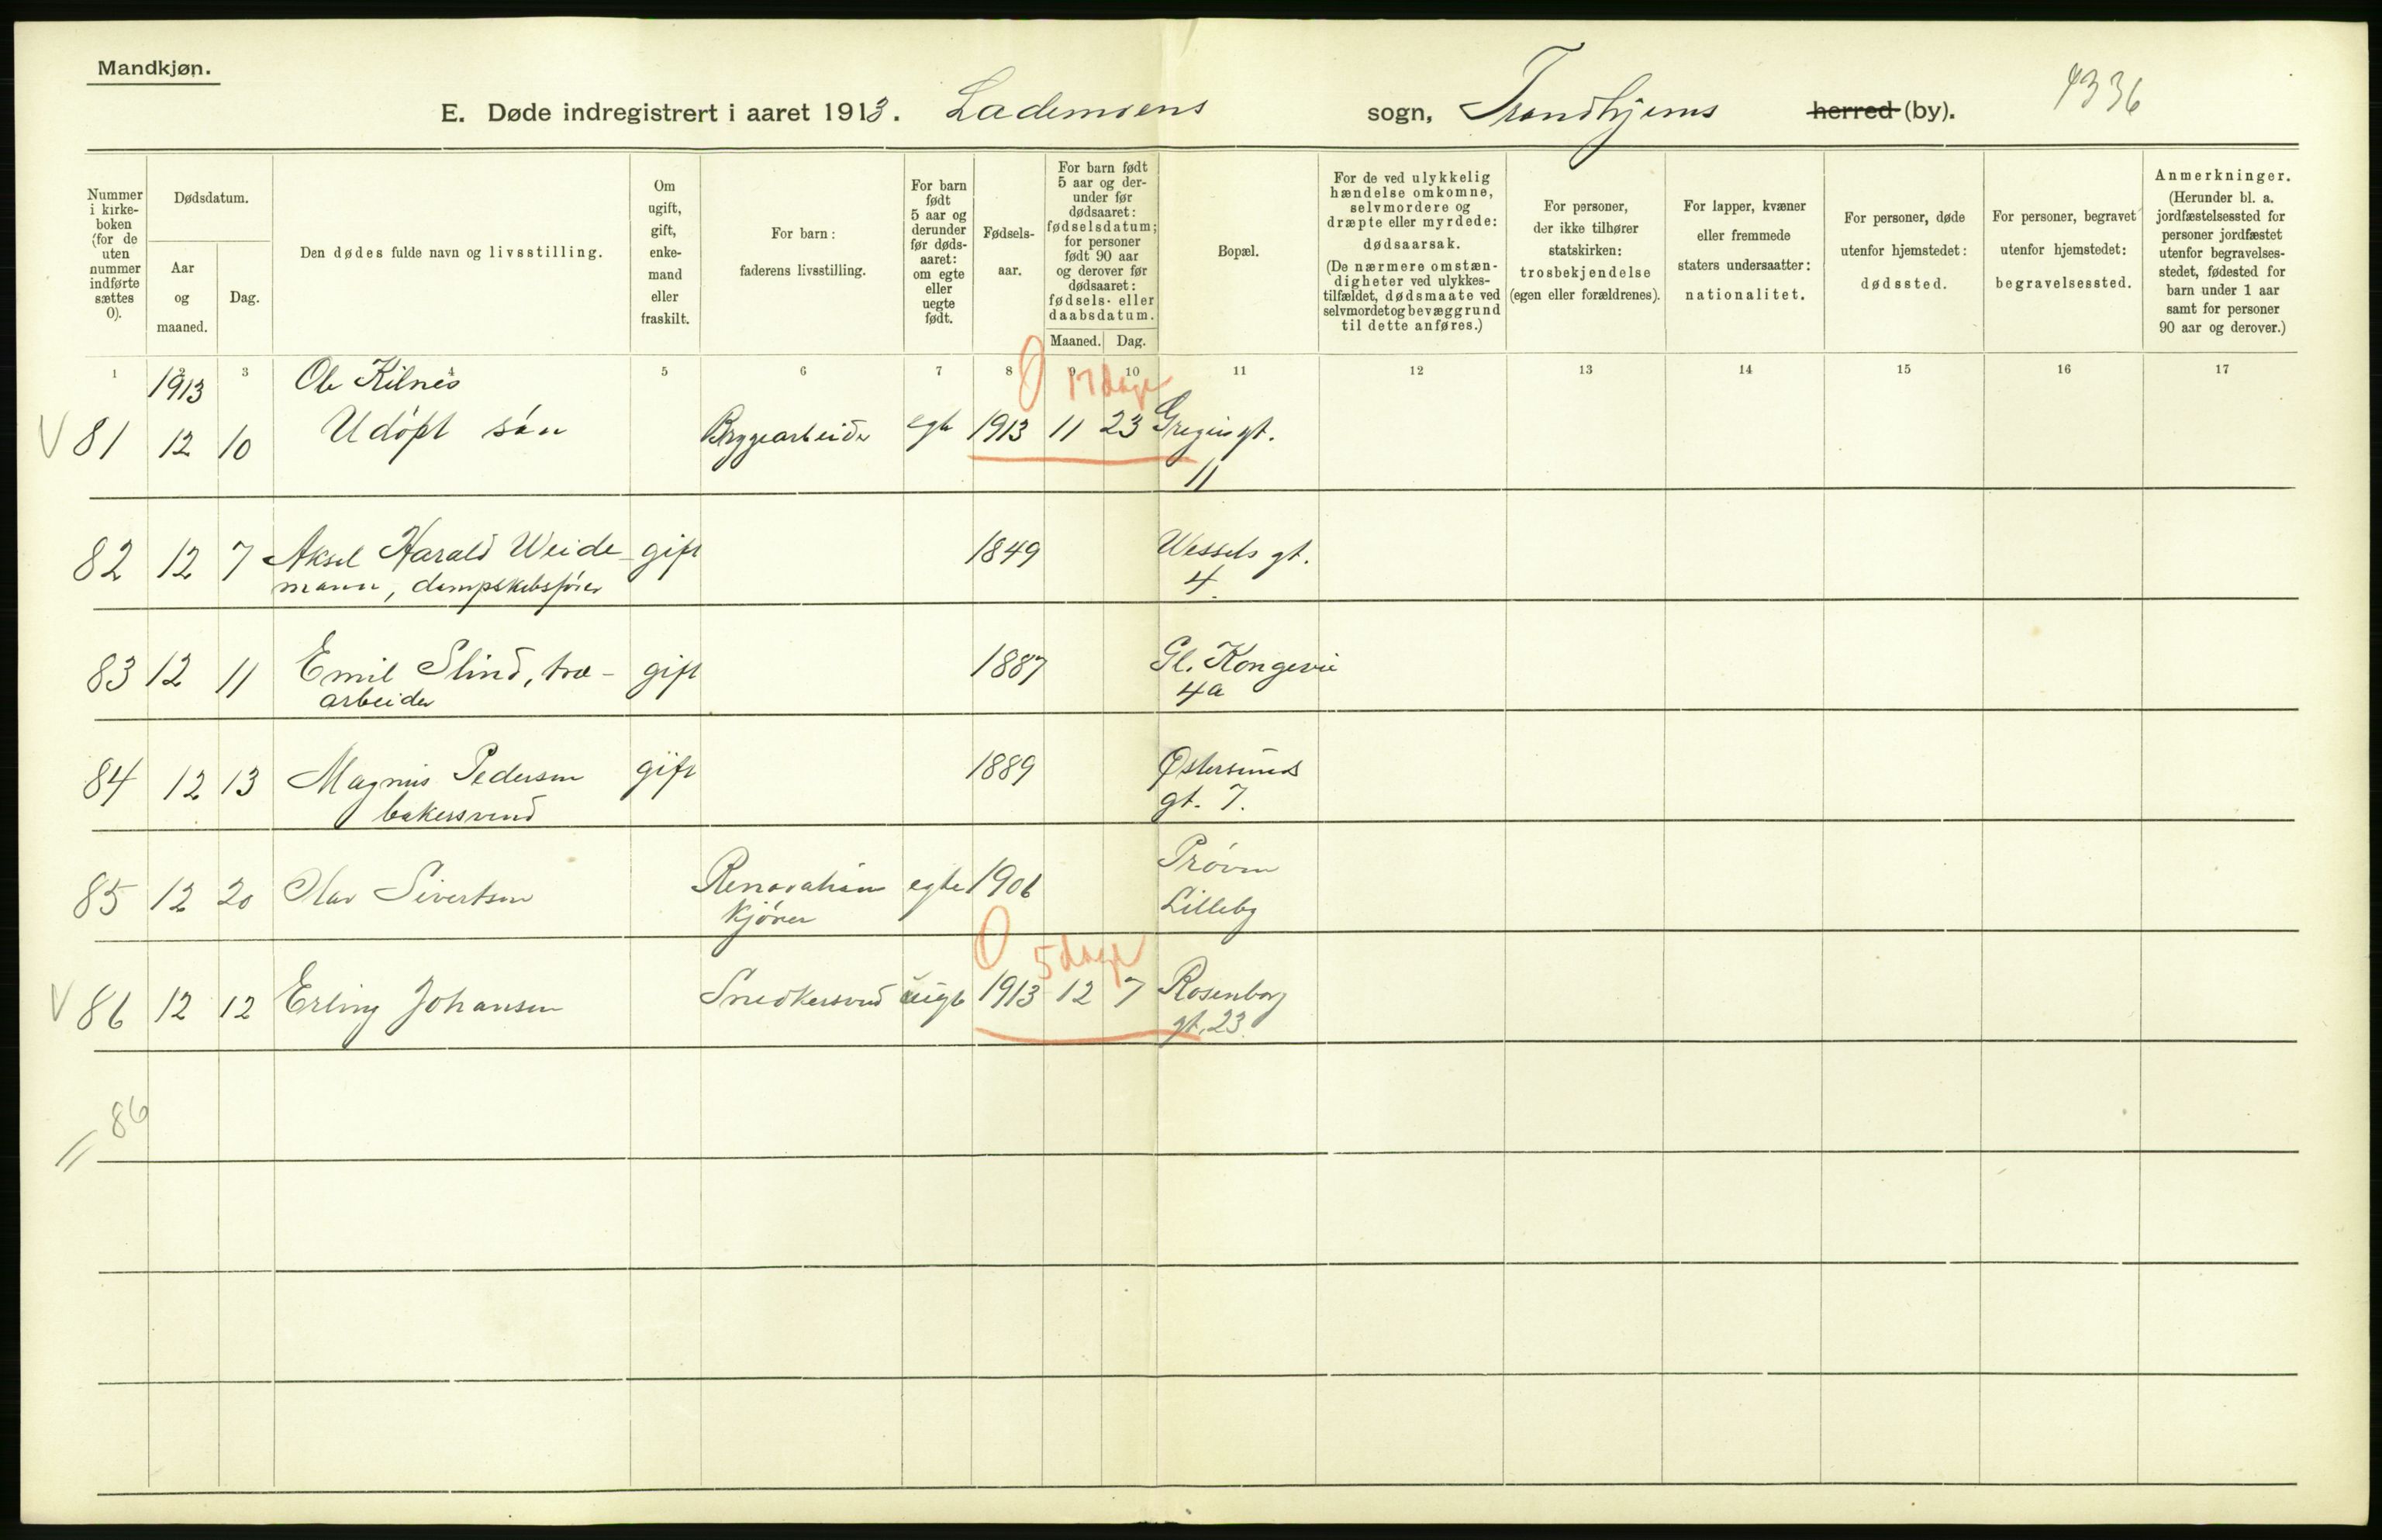 Mandkjøn.
E. Døde indregistrert i aaret 1913. Lademoens sogn, Trondhjems herred (by). 4336
Nummer i kirkeboken (for de uten nummer indførte sættes 0).
Dødsdatum.
Aar og maaned.
Dag.
Den dødes fulde navn og livsstilling.
Om ugift, gift, enkemand eller fraskilt.
For barn: faderens livsstilling.
For barn født 5 aar og derunder før dødsaaret: om egte eller uegte født.
Fødselsaar.
For barn født 5 aar og derunder før dødsaaret: fødselsdatum; for personer født 90 aar og derover før dødsaaret: fødsels- eller daabsdatum.
Maaned. Dag.
Bopæl.
For de ved ulykkelig hændelse omkomne, selvmordere og dræpte eller myrdede: dødsaarsak. (De nærmere omstændigheter ved ulykkestilfældet, dødsmaate ved selvmordet og bevæggrund til dette anføres.)
For personer, der ikke tilhører statskirken: trosbekjendelse (egen eller forældrenes).
For lapper, kvæner eller fremmede staters undersaatter: nationalitet.
For personer, døde utenfor hjemstedet: dødssted.
For personer, begravet utenfor hjemstedet: begravelsessted.
Anmerkninger. (Herunder bl. a. jordfæstelsessted for personer jordfæstet utenfor begravelsesstedet, fødested for barn under 1 aar samt for personer 90 aar og derover.)
1 2 3 4 5 6 7 8 9 10 11 12 13 14 15 16 17
1913 Ole Kilnes 0 17 dage
V 81 12 10 Udöpt sön Bryggearbeider egte 1913 11 23 gt.
11
82 12 7 Aksel Harald Weide- gift 1849 Wessels gt.
mann, dampskibsfører 4.
83 12 11 Emil Slind, træ- gift 1887 Gl. Kongevei
arbeider 4a
84 12 13 Magnus Pedersen gift 1889 Østersunds
bakersvend gt. 7.
85 12 20 Olav Sivertsen Renovations egte 1906 Prøven
kjører Lilleby
0 5 dage
V 86 12 12 Erling Johansen Snedkersvend uegte 1913 12 7 Rosenborg
gt. 23.
86